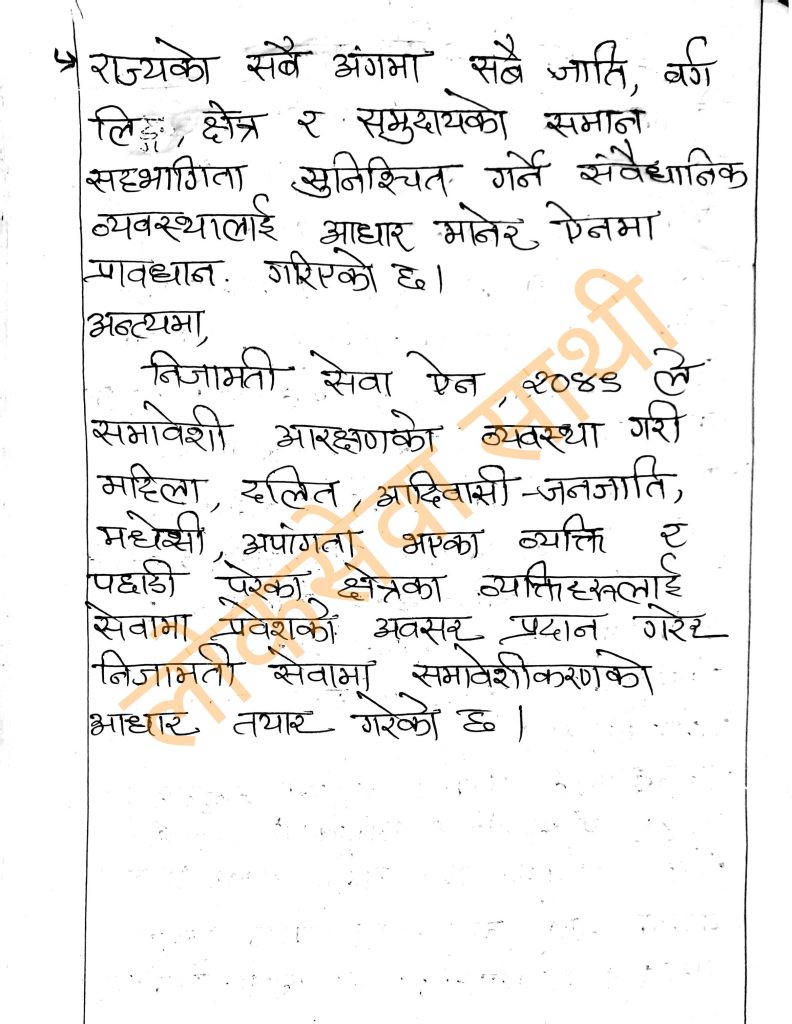 → राज्यको सबै अंगमा सबै जाति, वर्ग
लिङ्ग, क्षेत्र र समुदायको समान
सहभागिता सुनिश्चित गर्ने संवैधानिक
व्यवस्थालाई आधार मानेर ऐनमा
प्रावधान गरिएको छ।
अन्त्यमा,
निजामती सेवा ऐन, २०४९ ले
समावेशी आरक्षणको व्यवस्था गरी
महिला, दलित, आदिवासी-जनजाति,
मधेसी, अपांगता भएका व्यक्ति र
पछाडी परेका क्षेत्रका व्यक्तिहरूलाई
सेवामा प्रवेशको अवसर प्रदान गरेर
निजामती सेवामा समावेशीकरणको
आधार तयार गरेको छ।
लोकसेवा साथी